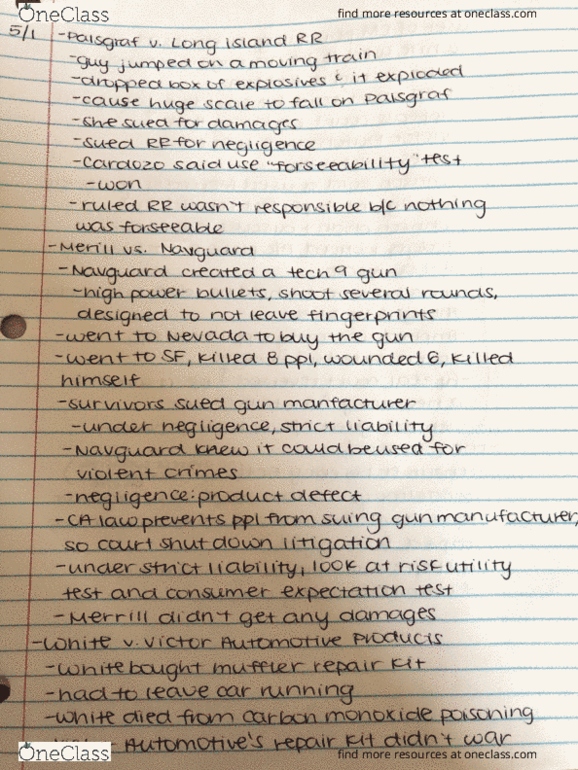 OneClass
find more resources at oneclass.com
5/1 -Palsgraf v. Long island RR
-guy jumped on a moving train
-dropped box of explosives & it exploded
-cause huge scale to fall on Palsgraf
-she sued for damages
-sued RR for negligence
-Cardozo said use "forseeability" test
-won
-ruled RR wasn't responsible b/c nothing
was forseeable
-Merill vs. Navguard
-Navguard created a tech 9 gun
-high power bullets, shoot several rounds,
designed to not leave fingerprints
-went to Nevada to buy the gun
-went to SF, killed 8 ppl, wounded 6, killed
himself
-survivors sued gun manfacturer
-under negligence, strict liability
-Navguard knew it could be used for
violent crimes
-negligence: product defect
-CA law prevents ppl from suing gun manufacturer,
so court shut down litigation
-under strict liability, look at risk utility
test and consumer expectation test
-Merrill didn't get any damages
-White v. Victor Automotive Products
-White bought muffler repair kit
-had to leave car running
-White died from carbon monoxide poisoning
Automotive's repair kit didn't war
OneClass
find more resources at oneclass.com